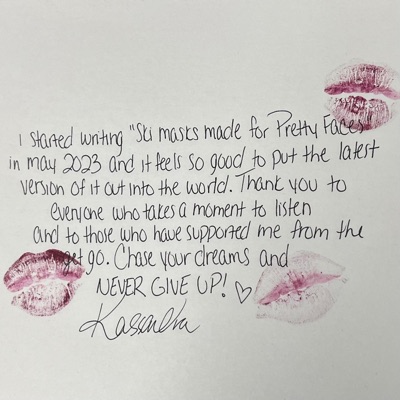 I started writing "Ski masks made for Pretty Faces"
in may 2023 and it feels so good to put the latest
version of it out into the world. Thank you to
everyone who takes a moment to listen
and to those who have supported me from the
get go. Chase your dreams and
NEVER GIVE UP! ♡
Kassandra